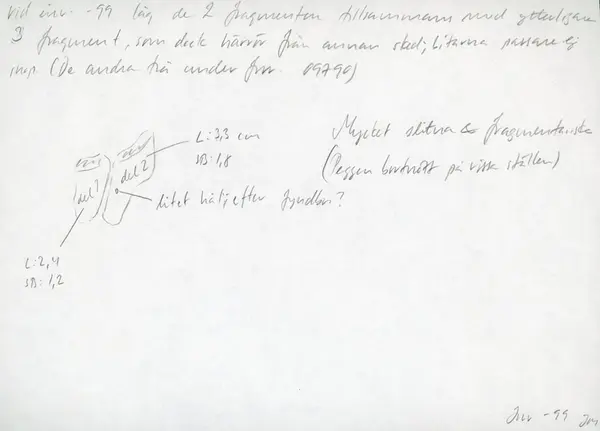 vid inv. -99 låg de 2 fragmenten tillsammans med ytterligare
3 fragment, som dock härrör från annan sked; bitarna passar ej
ihop. (De andra två under fnr. 09790)
Mycket slitna & fragmentariska
(Peggen bortnött på vissa ställen)
L: 3,3 cm
SB: 1,8
del 1
del 2
litet hål; efter
L: 2,4
SB: 1,2
Inv -99